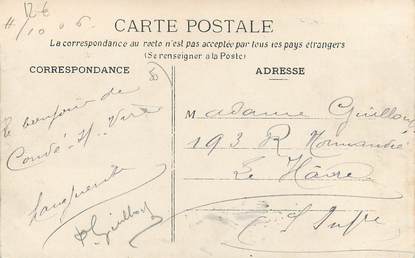 CARTE POSTALE
La correspondance au recto n'est pas acceptée par tous les pays étrangers
(Se renseigner à la Poste)
CORRESPONDANCE
ADRESSE
Le bonjour de
Condé
Madame Guilloux
193 R Normandie
Le Hâvre